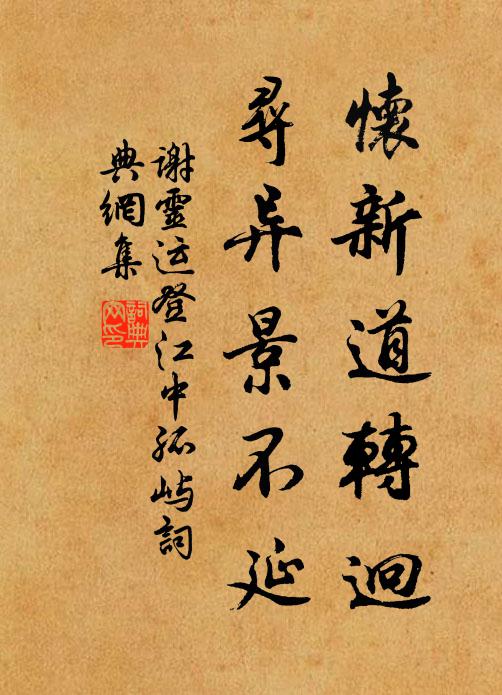 懷新道轉迥
尋异景不延
謝靈运登江中孤屿詞
典網集
詞典
网印